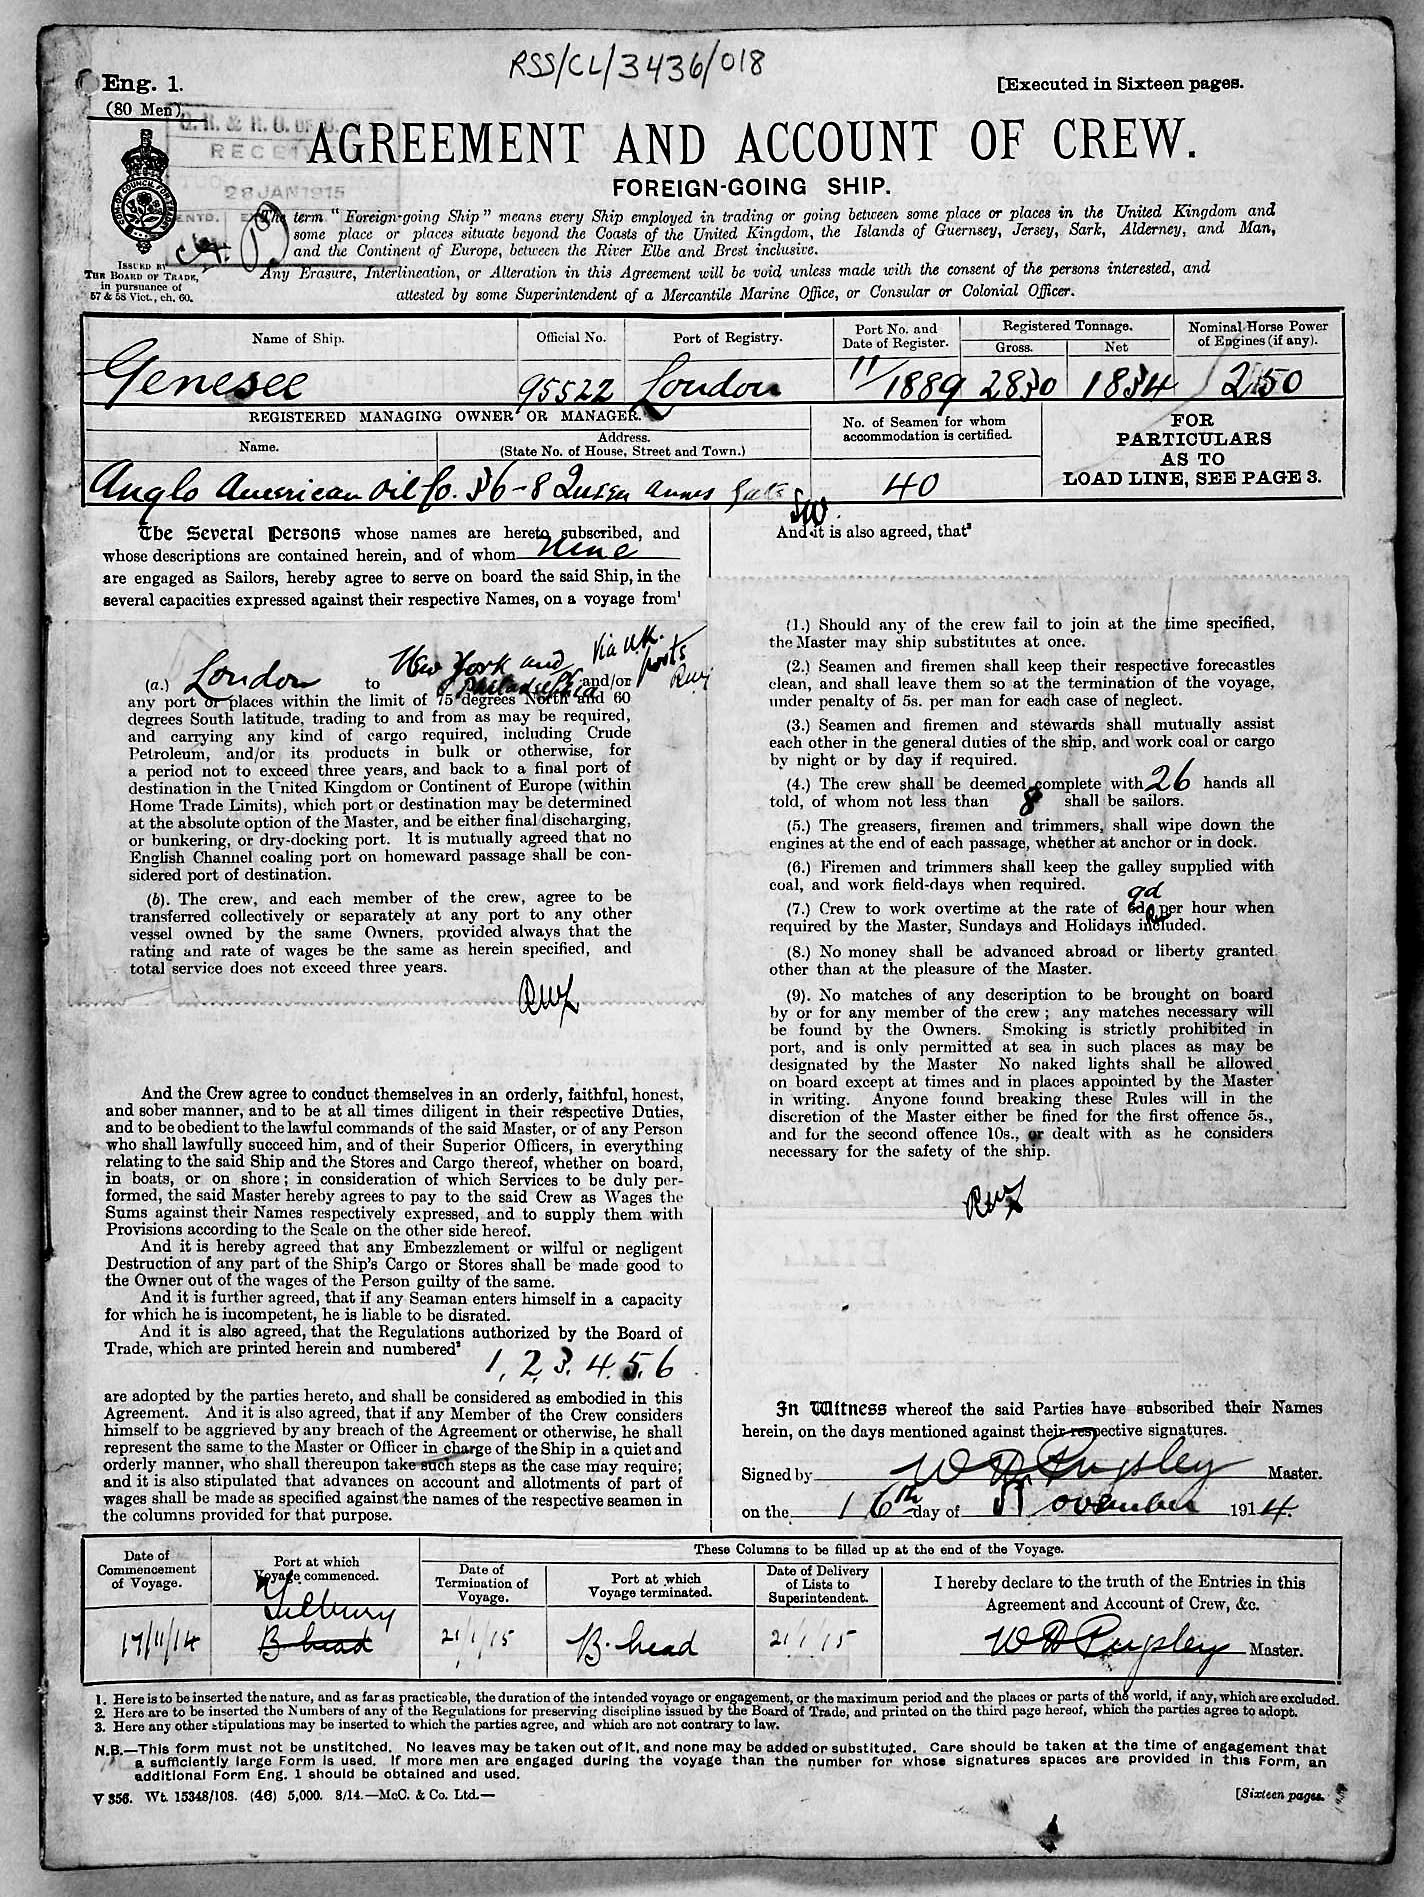 RSS/CL/3436/018
Eng. 1.
[Executed in Sixteen pages.
(80 Men).
RECE
28 JAN 1915
AGREEMENT AND ACCOUNT OF CREW.
FOREIGN-GOING SHIP.
The term "Foreign-going Ship" means every Ship employed in trading or going between some place or places in the United Kingdom and
some place or places situate beyond the Coasts of the United Kingdom, the Islands of Guernsey, Jersey, Sark, Alderney, and Man,
and the Continent of Europe, between the River Elbe and Brest inclusive.
Any Erasure, Interlineation, or Alteration in this Agreement will be void unless made with the consent of the persons interested, and
attested by some Superintendent of a Mercantile Marine Office, or Consular or Colonial Officer.
ISSUED BY
THE BOARD OF TRADE,
in pursuance of
57 & 58 Vict., ch. 60.
Name of Ship. Official No. Port of Registry. Port No. and Date of Register. Registered Tonnage. Gross. Net Nominal Horse Power of Engines (if any).
Genesee 95522 London 11/1889 2830 1834 250
REGISTERED MANAGING OWNER OR MANAGER.
Name. Address. (State No. of House, Street and Town.)
No. of Seamen for whom accommodation is certified.
FOR PARTICULARS AS TO LOAD LINE, SEE PAGE 3.
Anglo American Oil Co. 36-8 Queen Annes Gate SW. 40
The Several Persons whose names are hereto subscribed, and
whose descriptions are contained herein, and of whom Nine
are engaged as Sailors, hereby agree to serve on board the said Ship, in the
several capacities expressed against their respective Names, on a voyage from¹
via UK. ports
(a.) London to New York and Philadelphia and/or
any port or places within the limit of 75 degrees North and 60
degrees South latitude, trading to and from as may be required,
and carrying any kind of cargo required, including Crude
Petroleum, and/or its products in bulk or otherwise, for
a period not to exceed three years, and back to a final port of
destination in the United Kingdom or Continent of Europe (within
Home Trade Limits), which port or destination may be determined
at the absolute option of the Master, and be either final discharging,
or bunkering, or dry-docking port. It is mutually agreed that no
English Channel coaling port on homeward passage shall be con-
sidered port of destination.
(b). The crew, and each member of the crew, agree to be
transferred collectively or separately at any port to any other
vessel owned by the same Owners, provided always that the
rating and rate of wages be the same as herein specified, and
total service does not exceed three years.
And the Crew agree to conduct themselves in an orderly, faithful, honest,
and sober manner, and to be at all times diligent in their respective Duties,
and to be obedient to the lawful commands of the said Master, or of any Person
who shall lawfully succeed him, and of their Superior Officers, in everything
relating to the said Ship and the Stores and Cargo thereof, whether on board,
in boats, or on shore; in consideration of which Services to be duly per-
formed, the said Master hereby agrees to pay to the said Crew as Wages the
Sums against their Names respectively expressed, and to supply them with
Provisions according to the Scale on the other side hereof.
And it is hereby agreed that any Embezzlement or wilful or negligent
Destruction of any part of the Ship's Cargo or Stores shall be made good to
the Owner out of the wages of the Person guilty of the same.
And it is further agreed, that if any Seaman enters himself in a capacity
for which he is incompetent, he is liable to be disrated.
And it is also agreed, that the Regulations authorized by the Board of
Trade, which are printed herein and numbered²
1, 2, 3. 4. 5. 6
are adopted by the parties hereto, and shall be considered as embodied in this
Agreement. And it is also agreed, that if any Member of the Crew considers
himself to be aggrieved by any breach of the Agreement or otherwise, he shall
represent the same to the Master or Officer in charge of the Ship in a quiet and
orderly manner, who shall thereupon take such steps as the case may require;
and it is also stipulated that advances on account and allotments of part of
wages shall be made as specified against the names of the respective seamen in
the columns provided for that purpose.
And it is also agreed, that³
(1.) Should any of the crew fail to join at the time specified,
the Master may ship substitutes at once.
(2.) Seamen and firemen shall keep their respective forecastles
clean, and shall leave them so at the termination of the voyage,
under penalty of 5s. per man for each case of neglect.
(3.) Seamen and firemen and stewards shall mutually assist
each other in the general duties of the ship, and work coal or cargo
by night or by day if required.
(4.) The crew shall be deemed complete with 26 hands all
told, of whom not less than 8 shall be sailors.
(5.) The greasers, firemen and trimmers, shall wipe down the
engines at the end of each passage, whether at anchor or in dock.
(6.) Firemen and trimmers shall keep the galley supplied with
coal, and work field-days when required.
(7.) Crew to work overtime at the rate of 9d 6d. per hour when
required by the Master, Sundays and Holidays included.
(8.) No money shall be advanced abroad or liberty granted
other than at the pleasure of the Master.
(9). No matches of any description to be brought on board
by or for any member of the crew; any matches necessary will
be found by the Owners. Smoking is strictly prohibited in
port, and is only permitted at sea in such places as may be
designated by the Master No naked lights shall be allowed
on board except at times and in places appointed by the Master
in writing. Anyone found breaking these Rules will in the
discretion of the Master either be fined for the first offence 5s.,
and for the second offence 10s., or dealt with as he considers
necessary for the safety of the ship.
In Witness whereof the said Parties have subscribed their Names
herein, on the days mentioned against their respective signatures.
Signed by W D Pugsley Master.
on the 16th day of November 1914.
Date of Commencement of Voyage. Port at which Voyage commenced. These Columns to be filled up at the end of the Voyage.
Date of Termination of Voyage. Port at which Voyage terminated. Date of Delivery of Lists to Superintendent.
I hereby declare to the truth of the Entries in this
Agreement and Account of Crew, &c.
17/11/14 Tilbury B-head 21/1/15 B-head 21/1/15 W D Pugsley Master.
1. Here is to be inserted the nature, and as far as practicable, the duration of the intended voyage or engagement, or the maximum period and the places or parts of the world, if any, which are excluded.
2. Here are to be inserted the Numbers of any of the Regulations for preserving discipline issued by the Board of Trade, and printed on the third page hereof, which the parties agree to adopt.
3. Here any other stipulations may be inserted to which the parties agree, and which are not contrary to law.
N.B.—This form must not be unstitched. No leaves may be taken out of it, and none may be added or substituted. Care should be taken at the time of engagement that
a sufficiently large Form is used. If more men are engaged during the voyage than the number for whose signatures spaces are provided in this Form, an
additional Form Eng. 1 should be obtained and used.
V 356. Wt. 15348/108. (46) 5,000. 8/14.—McC. & Co. Ltd.—
[Sixteen pages.